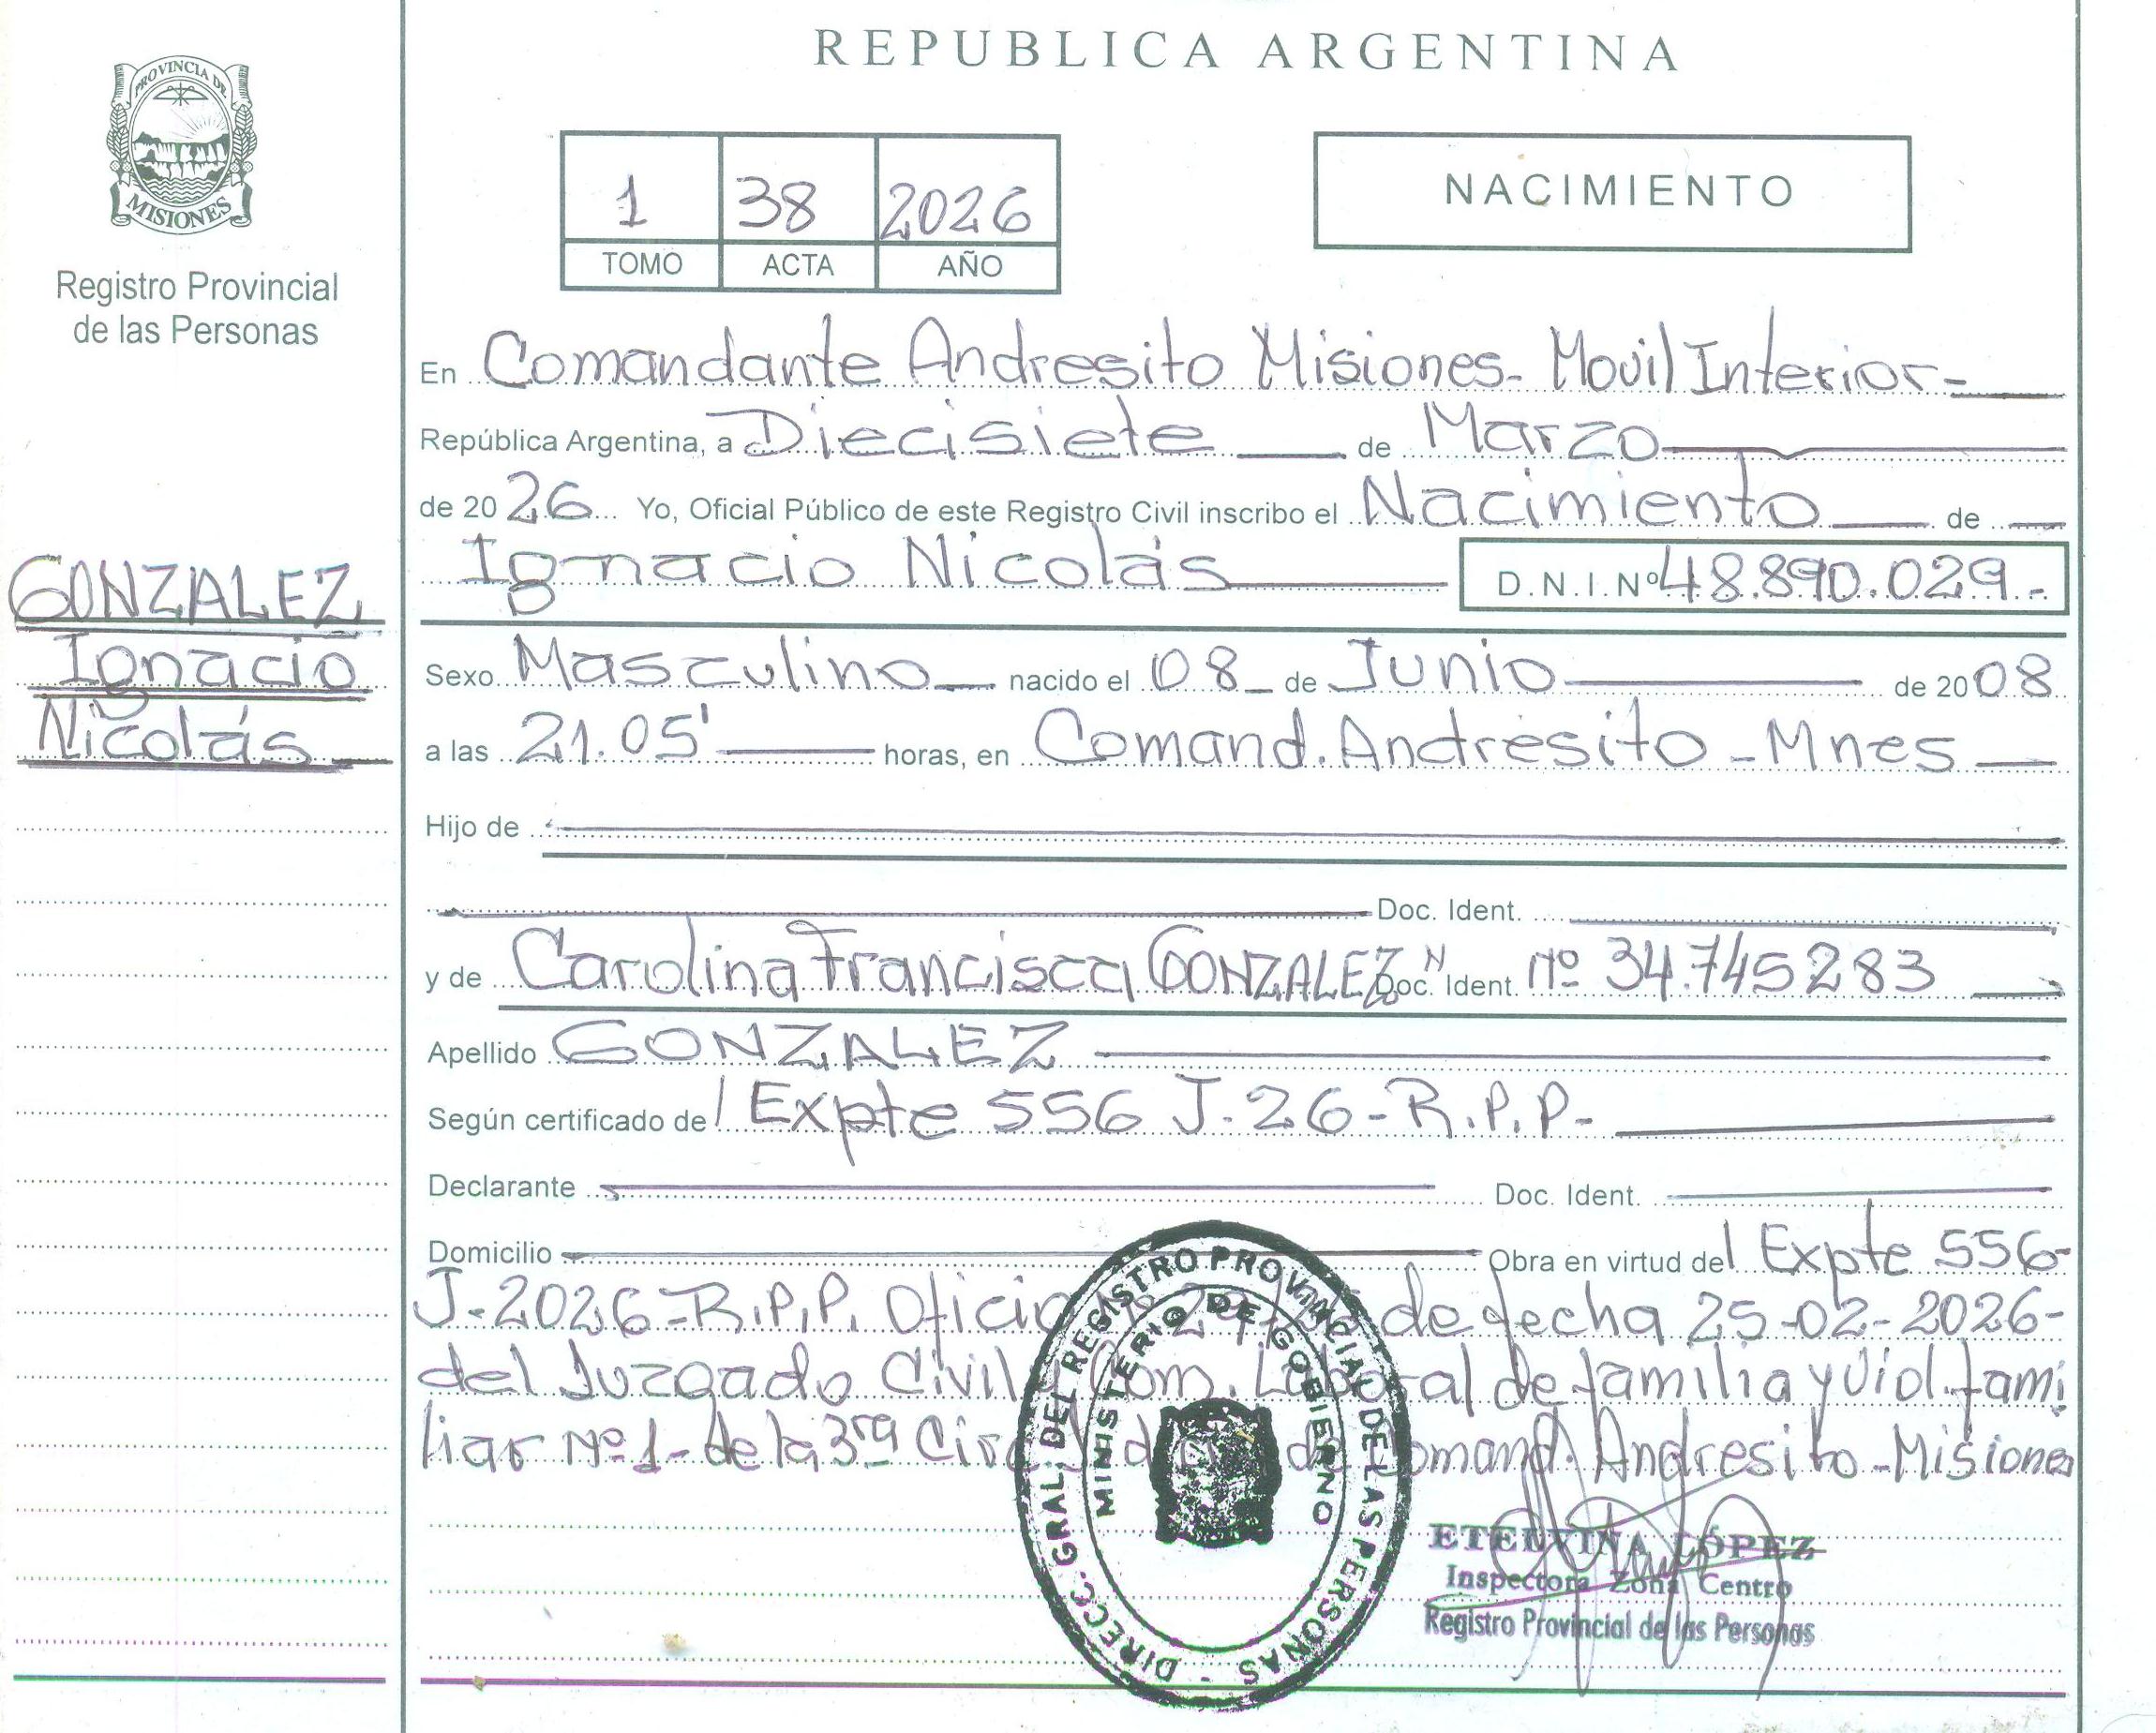 REPUBLICA ARGENTINA
PROVINCIA DE
MISIONES
Registro Provincial
de las Personas
1 38 2026
TOMO ACTA AÑO
NACIMIENTO
En Comandante Andresito Misiones - Movil Interior -
República Argentina, a Diecisiete de Marzo
de 2026 Yo, Oficial Público de este Registro Civil inscribo el Nacimiento de
Ignacio Nicolás D.N.I.Nº 48.890.029.-
GONZALEZ
Ignacio
Nicolás
Sexo Masculino nacido el 08 de Junio de 2008
a las 21.05' horas, en Comand. Andresito - Mnes
Hijo de
Doc. Ident.
y de Carolina Francisca GONZALEZ Doc. Ident. Nº 34.745283
Apellido GONZALEZ
Según certificado de l Expte 556 J-26-R.P.P-
Declarante Doc. Ident.
Domicilio Obra en virtud del Expte 556-
J-2026-R.P.P. Oficio de fecha 25-02-2026-
del Juzgado Civil y Com. Laboral de familia y Viol. fami
liar Nº 1- de la 3ra de Comand. Andresito - Misiones
DIRECC. GRAL. DEL REGISTRO PROVINCIAL DE LAS PERSONAS -
MINISTERIO DE GOBIERNO
ETELVINA LÓPEZ
Inspectora Zona Centro
Registro Provincial de las Personas